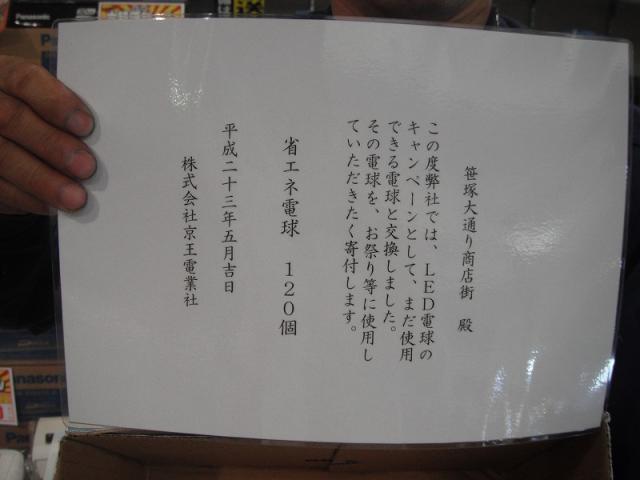 笹塚大通り商店街 殿
この度弊社では、LED電球の
キャンペーンとして、まだ使用
できる電球と交換しました。
その電球を、お祭り等に使用し
ていただきたく寄付します。
省エネ電球 120個
平成二十三年五月吉日
株式会社京王電業社
Panasonic